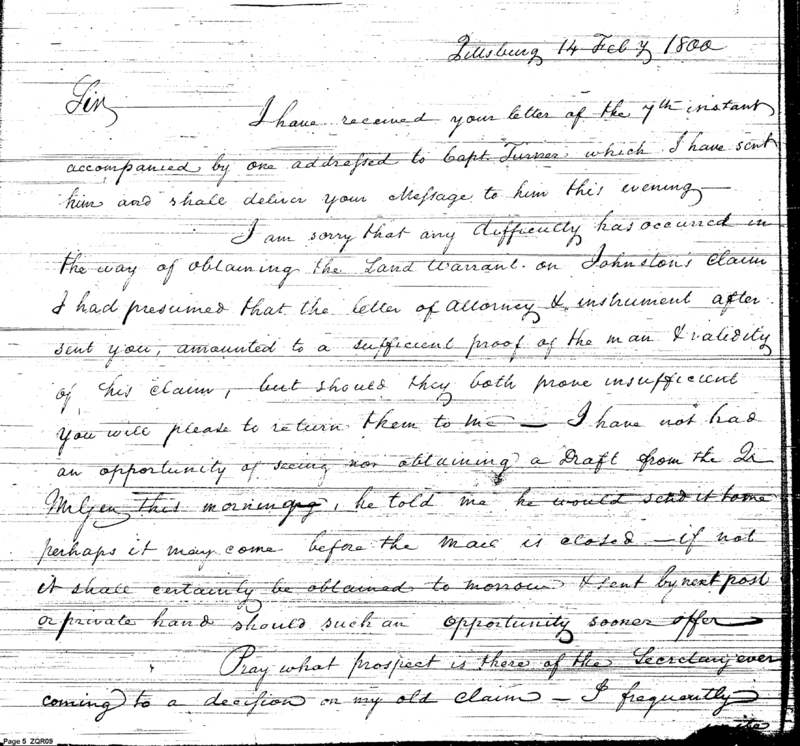 Pittsburg 14 Feby 1800
Sir
I have received your letter of the 7th instant
accompanied by one addressed to Capt. Turner which I have sent
him and shall deliver your Message to him this evening —
I am sorry that any difficulty has occurred in
the way of obtaining the Land Warrant on Johnston's Claim
I had presumed that the letter of Attorney & instrument after
sent you, amounted to a sufficient proof of the man & validity
of his claim, but should they both prove insufficient
you will please to return them to me — I have not had
an opportunity of seeing nor obtaining a Draft from the Qr
MrGen this morning, he told me he would send it home
perhaps it may come before the Mail is closed — if not
it shall certainly be obtained to morrow & sent by next post
or private hand should such an opportunity sooner offer
Pray what prospect is there of the Secretary ever
coming to a decision on my old Claim — I frequently
Page 5 ZQR09